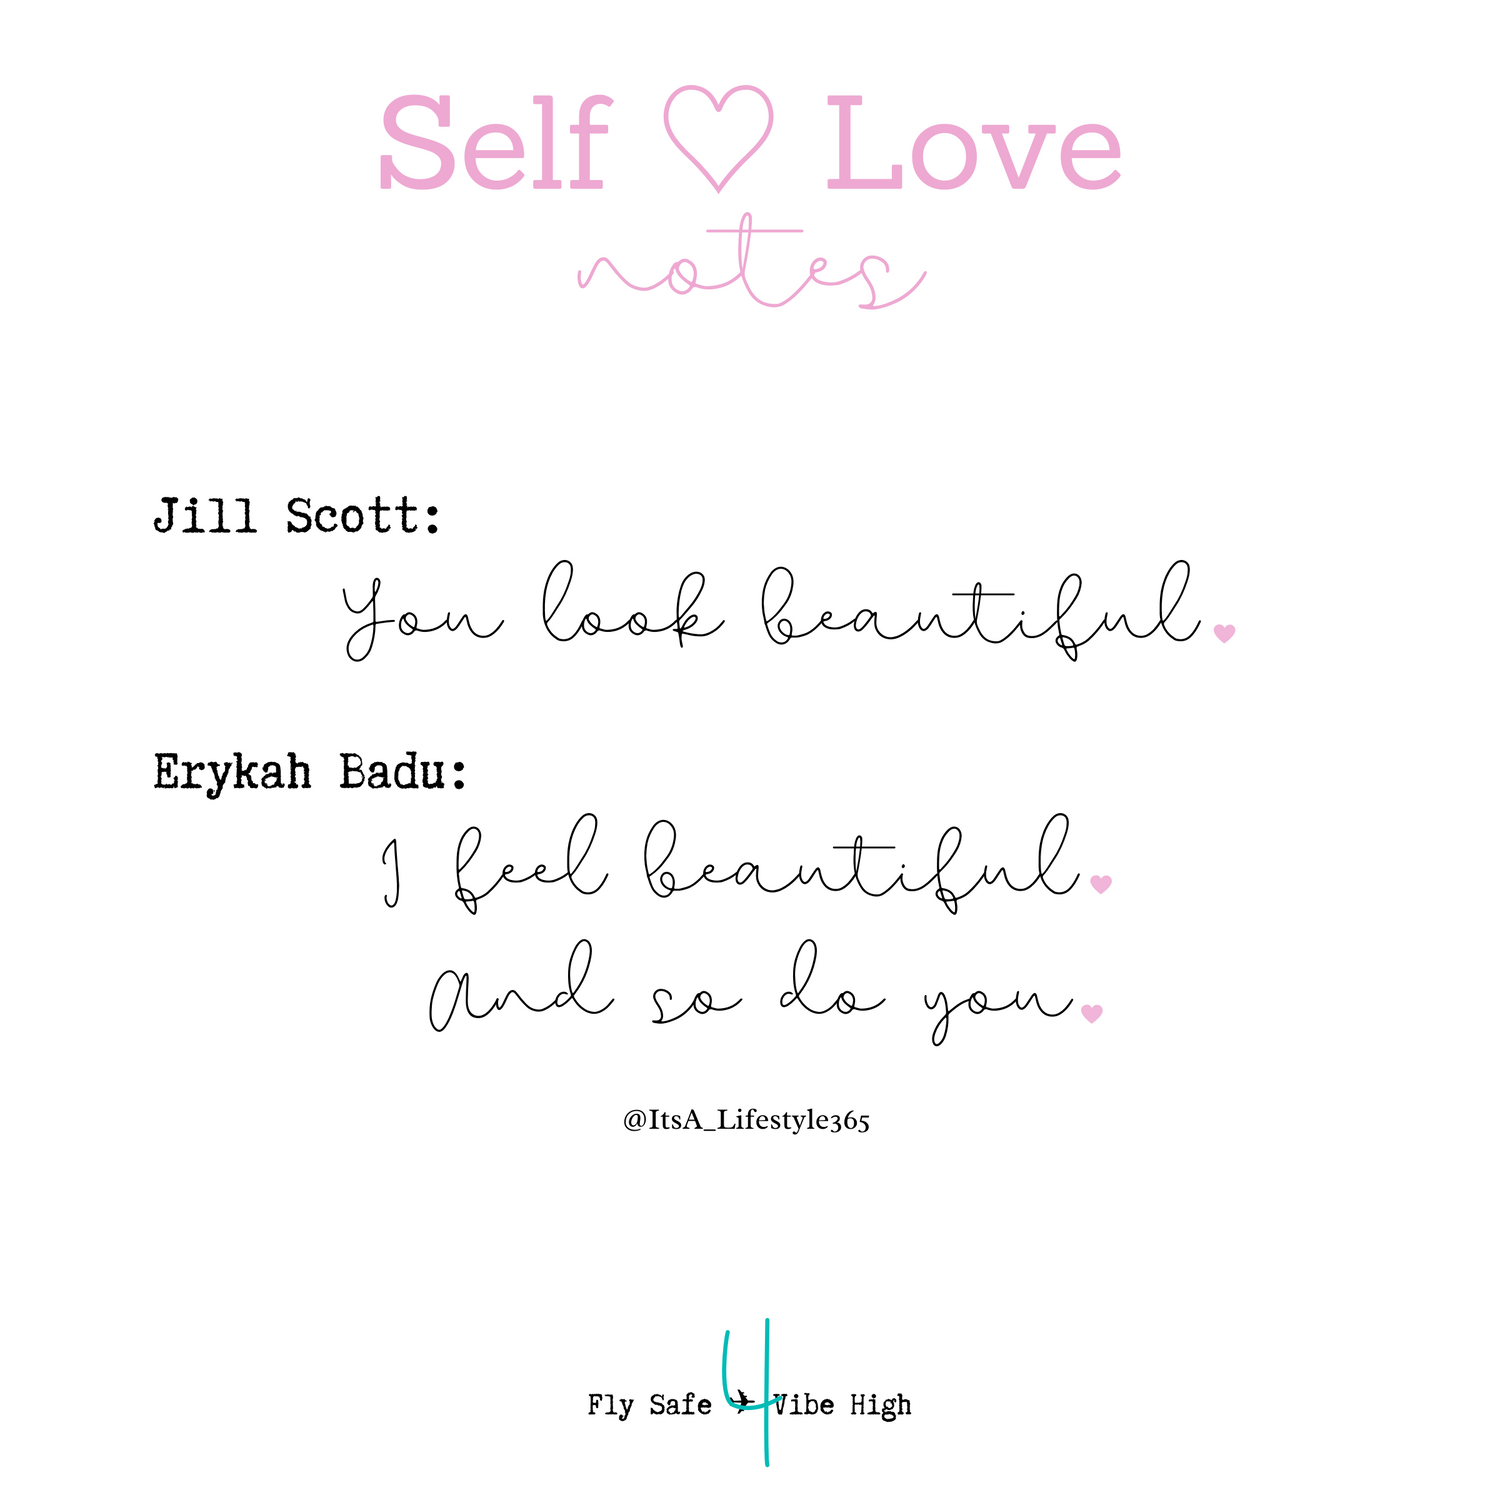 Self ♡ Love
notes
Jill Scott:
You look beautiful.
Erykah Badu:
I feel beautiful.
And so do you.
@ItsA_Lifestyle365
4
Fly Safe ✈ Vibe High